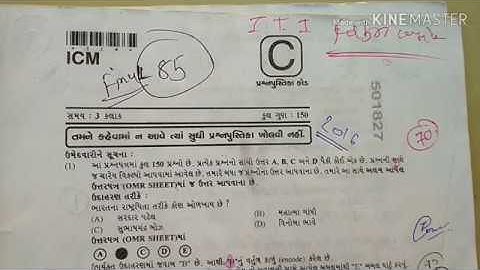 Made with KINEMASTER
I T I
ICM
Final 85
C
પ્રશ્નપુસ્તિકા કોડ
501827
સમય : 3 કલાક
કુલ ગુણ : 150
તમને કહેવામાં ન આવે ત્યાં સુધી પ્રશ્નપુસ્તિકા ખોલવી નહીં.
2016
70
ઉમેદવારોને સૂચના :
(1) આ પ્રશ્નપત્રમાં કુલ 150 પ્રશ્નો છે. પ્રત્યેક પ્રશ્નનો સાચો ઉત્તર A, B, C અને D પૈકી કોઈ એક છે. પ્રશ્નની
જ ચારેય વિકલ્પો આપવામાં આવેલ છે. તમારે બધા જ પ્રશ્નોના ઉત્તર આપવાના છે. તમારે આ સાથે અલગ આપેલ
ઉત્તરપત્ર (OMR SHEET)માં જ ઉત્તર આપવાના છે.
ઉદાહરણ તરીકે :
ભારતના રાષ્ટ્રપિતા તરીકે કોણ ઓળખાય છે ?
(A) સરદાર પટેલ (B) મહાત્મા ગાંધી
(C) સુભાષચંદ્ર બોઝ (D) વિનોબા ભાવે
ઉત્તરપત્ર (OMR SHEET)માં
A C D E
ઉપર્યુક્ત ઉદાહરણમાં જવાબ "B" છે. આથી "B"નું વર્તુળ કાળું (encode) કરેલ છે.